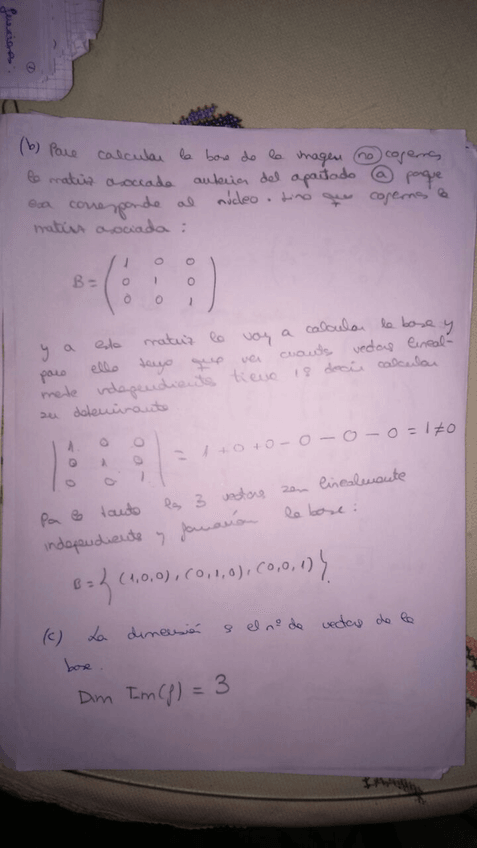 (b) Para calcular la base de la imagen no cojemos
la matriz asociada anterior del apartado a porque
esa corresponde al núcleo. sino que cojemos la
matriz asociada:
B = ( 1 0 0
0 1 0
0 0 1 )
y a esta matriz le voy a calcular la base y
para ello tengo que ver cuantos vectores lineal-
mente independiente tiene es decir calcular
su determinante
| 1 0 0
0 1 0 | = 1 + 0 + 0 - 0 - 0 - 0 = 1 ≠ 0
0 0 1 |
Por lo tanto los 3 vectores son linealmente
independiente y formarán la base:
B = { (1,0,0), (0,1,0), (0,0,1) }
(c) La dimensión es el nº de vectores de la
base.
Dim Im(f) = 3